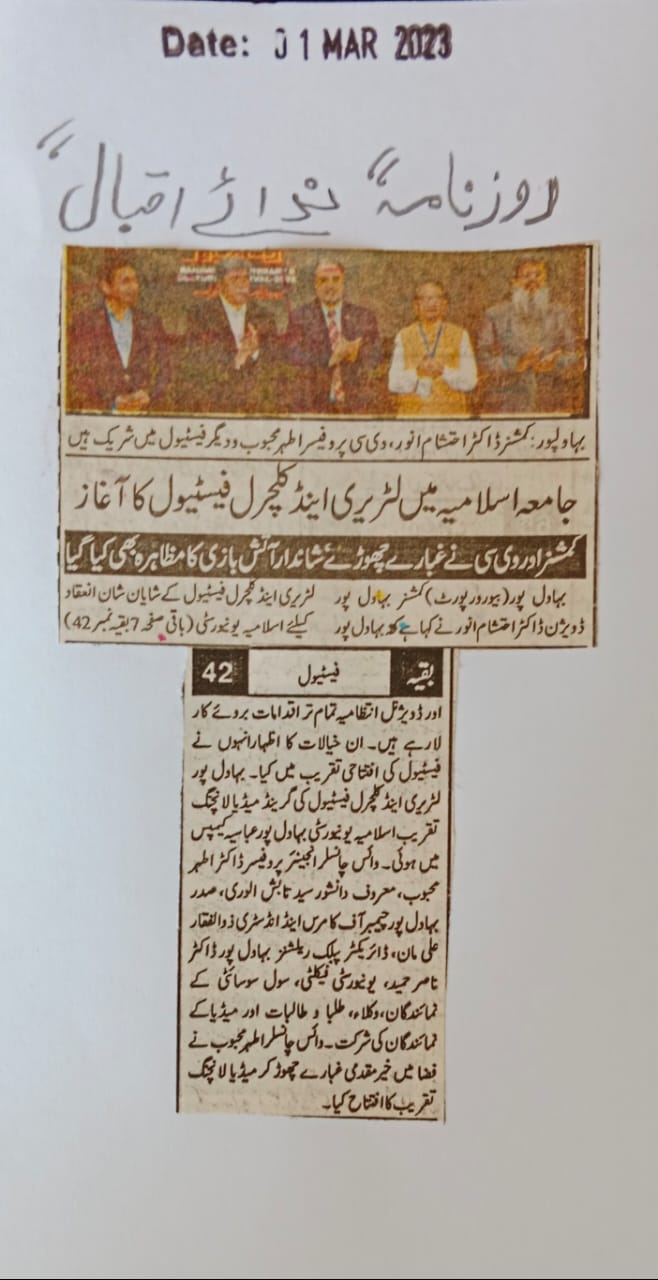 Date: 01 MAR 2023
روزنامہ “ندائے اقبال“
بہاولپور: کمشنر ڈاکٹر احتشام انور، وی سی پروفیسر اطہر محبوب و دیگر فیسٹیول میں شریک ہیں
جامعہ اسلامیہ میں لٹریری اینڈ کلچرل فیسٹیول کا آغاز
کمشنر اور وی سی نے غبارے چھوڑے شاندار آتش بازی کا مظاہرہ بھی کیا گیا
بہاول پور (بیورورپورٹ) کمشنر بہاول پور
ڈویژن ڈاکٹر احتشام انور نے کہا ہے کہ بہاول پور
لٹریری اینڈ کلچرل فیسٹیول کے شایان شان انعقاد
کیلئے اسلامیہ یونیورسٹی (باقی صفحہ 7 بقیہ نمبر 42)
بقیہ فیسٹیول 42
اور ڈویژنل انتظامیہ تمام تر اقدامات بروئے کار
لا رہے ہیں۔ ان خیالات کا اظہار انہوں نے
فیسٹیول کی افتتاحی تقریب میں کیا۔ بہاول پور
لٹریری اینڈ کلچرل فیسٹیول کی گرینڈ میڈیا لانچنگ
تقریب اسلامیہ یونیورسٹی بہاول پور عباسیہ کیمپس
میں ہوئی۔ وائس چانسلر انجینئر پروفیسر ڈاکٹر اطہر
محبوب، معروف دانشور سید تابش الوری، صدر
بہاول پور چیمبر آف کامرس اینڈ انڈسٹری ذوالفقار
علی مان، ڈائریکٹر پبلک ریلشنز بہاول پور ڈاکٹر
ناصر حمید، یونیورسٹی فیکلٹی، سول سوسائٹی کے
نمائندگان، وکلاء، طلبا و طالبات اور میڈیا کے
نمائندگان کی شرکت۔ وائس چانسلر اطہر محبوب نے
فضا میں خیر مقدی غبارے چھوڑ کر میڈیا لانچنگ
تقریب کا افتتاح کیا۔